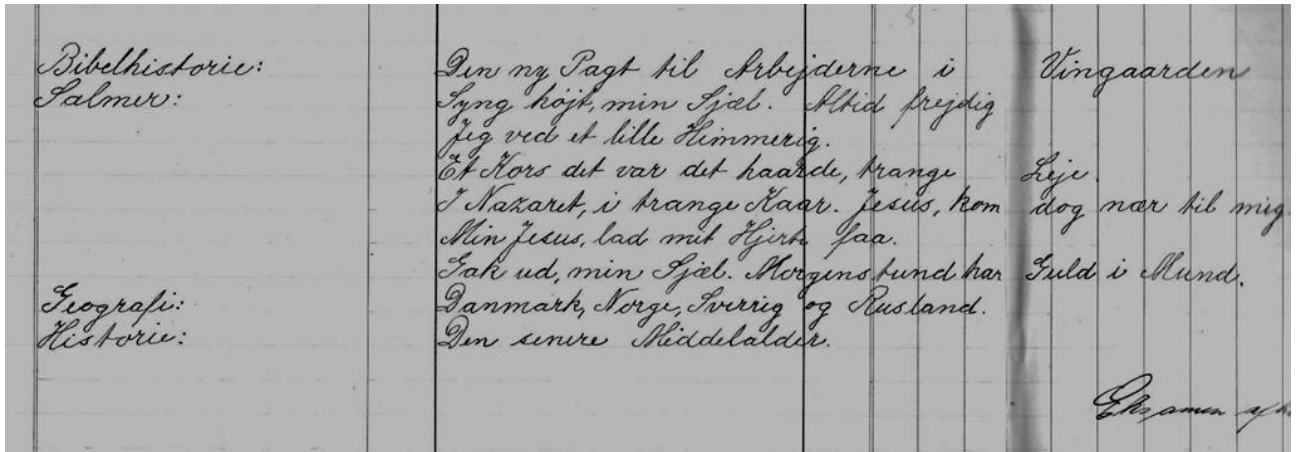 Bibelhistorie: Den ny Pagt til Arbejderne i Vingaarden
Salmer: Syng højt, min Sjæl. Altid frejdig
Jeg ved et lille Himmerig.
Et Kors det var det haarde, trange Leje.
I Nazaret, i trange Kaar. Jesus, kom dog nær til mig.
Min Jesus, lad mit Hjerte faa.
Gak ud, min Sjæl. Morgenstund har Guld i Mund.
Geografi: Danmark, Norge, Sverrig og Rusland.
Historie: Den senere Middelalder.
Eksamen